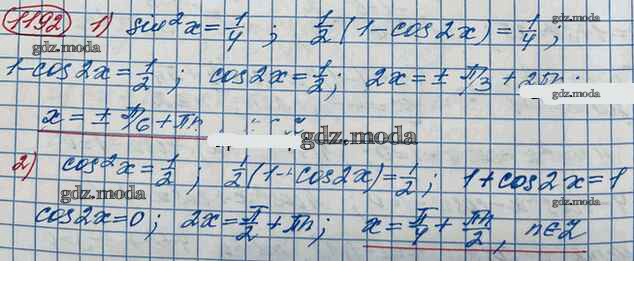 1192 1) sin²x = 1/4 ; 1/2 (1-cos2x) = 1/4 ;
gdz.moda gdz.moda
1-cos2x = 1/2 ; cos2x = 1/2 ; 2x = ± π/3 + 2πn ;
gdz.moda gdz.moda
x = ± π/6 + πn
gdz.moda
2) cos²x = 1/2 ; 1/2 (1+cos2x) = 1/2 ; 1+cos2x = 1
gdz.moda gdz.moda
cos2x = 0 ; 2x = π/2 + πn ; x = π/4 + πn/2 , n∈Z
gdz.moda